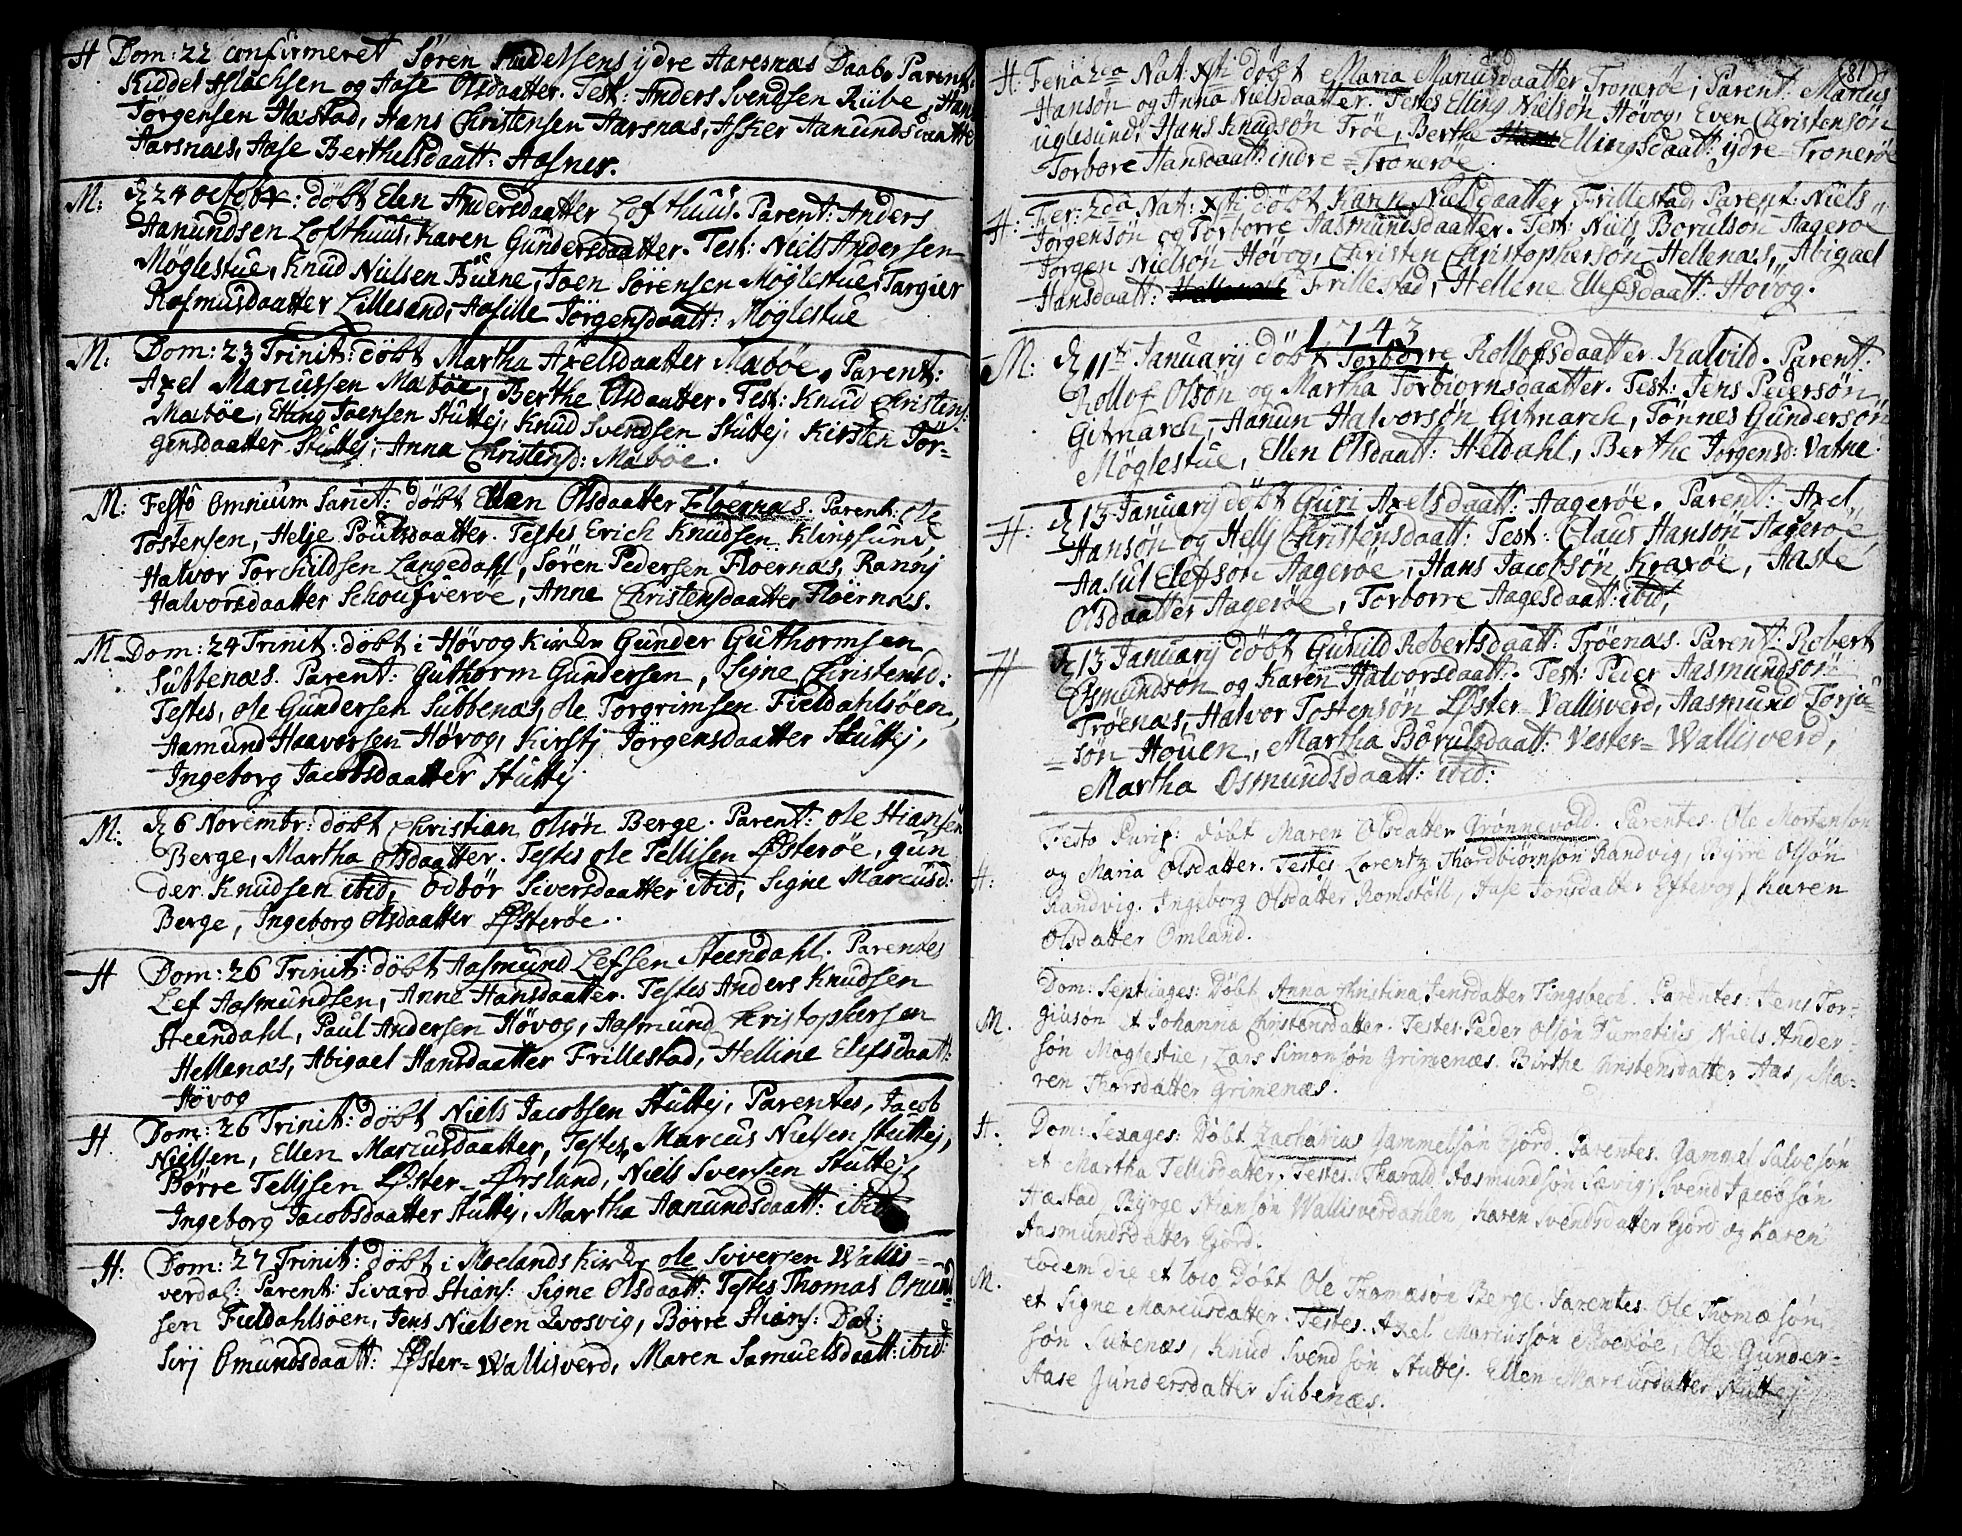 H Dom: 22 confirmeret Søren Kiddelsens ydre Aaresnæs Daab, Parent:
Kiddel Aslachsen og Aase Olsdaatter. Test: Anders Svendsen Riibe, Hans
Jørgensen Hæstad, Hans Christensen Aarsnæs, Asker Aanundsdaatter
Aarsnæs, Aase Berthelsdaatt: Aasnes.
M: D 24 octobr: döbt Elen Andersdaatter Lofthuus. Parent: Anders
Aanundsen Lofthuus, Karen Gundersdaatter. Test: Niels Andersen
Möglestue, Knud Nielsen Büene, Joen Sörensen Möglestue, Targier
Rasmusdaatter Lillesand, Aasille Jörgensdaatt: Möglestue
M: Dom: 23 Trinit: döbt Martha Axelsdaatter Mæböe, Parent:
Axel Marcussen Mæböe, Berthe Olsdaatter. Test: Knud Christens:
Mæböe, Elling Joensen Stüttej, Knud Svendsen Stüttej, Kirsten Jör-
gensdaatter Stüttej, Anna Christensd: Mæböe.
M: Festo Omnium Sanct: döbt Ellen Olsdaatter Floernæs. Parent: Ole
Tostensen, Helje Poulsdaatter. Testes Erich Knudsen Klingsund,
Halvor Torchildsen Langedahl, Sören Pedersen Floernæs, Rannj
Halvorsdaatter Schousveröe, Anne Christensdaatter Flöernæs.
M Dom: 24 Trinit: döbt i Hövog Kirke Gunder Guthormsen
Subbenæs. Parent: Guthorm Gundersen, Signe Christensd:
Testes, ole Gundersen Subbenæs, ole Torgrimsen Fieldahlsöen,
Aamund Haaversen Hövog, Kirstj Jörgensdaatter Stüttej,
Ingeborg Jacobsdaatter Stüttej
M: D 6 Novembr: döbt Christian olsön Berge. Parent: ole Stiansen
Berge, Martha Olsdaatter. Testes ole Tellisen Østeröe, gun
der Knudsen ibid, Odbör Siversdaatter ibid, Signe Marcusd:
Berge, Ingeborg Olsdaatter Østeröe.
H Dom: 26 Trinit: döbt Aasmund Lefsen Steendahl. Parentes
Lef Aasmundsen, Anne Hansdaatter. Testes Anders Knudsen
Steendahl, Paul Andersen Hövog, Aasmund Christophersen
Hellenæs, Abigael Hansdaatter Frillestad, Helline Elefsdaatt:
Hövog
H Dom: 26 Trinit: döbt Niels Jacobsen Stüttej, Parentes, Jacob
Nielsen, Ellen Marcusdaatter, Testes, Marcus Nielsen Stüttej,
Börre Tellisen Øster-Örsland, Niels Svensen Stüttej,
Ingeborg Jacobsdaatter Stüttej, Martha Aanundsdaatt: ibid
H: Dom: 27 Trinit: döbt i Moelands Kirke ole Siversen Wallis-
verdal: Parent: Sivard Stians: Signe Olsdaatt: Testes Thomas Omun-
sen Fieldahlsöen, Jens Nielsen Qvosvig, Börre Stians: Dal:
Sirj Omundsdaatt: Øster-Wallisverd, Maren Samuelsdaatt: ibid:
(81)
H. Feria 2da Nat: Xsti döbt Maria Mariusdaatter Troneröe, Parent: Marcus
Hansön og Anna Nielsdaatter. Testes Elling Nielsön Hövog, Even Christensön
uglesund, Hans Knudsön Tröe, Berthe Ellingsdaatt: ijdre-Troneröe
Torbore Hansdaatt: indre-Troneröe
H: Fer: 2da Nat: Xsti döbt Karin Nielsdaatter Frillestad, Parent: Niels
Jörgensön og Torborre Aasmundsdaatter. Test: Niels Borulsön Aageröe
Jörgen Nielsön Hövog, Christen Christophersön Hellenæs, Abigael
Hansdaatt: Frillestad, Hellene Ellefsdaatt: Hövog.
1743
M: D 11te Januarij döbt Torborre Rollofsdaatter Kalvild. Parent:
Rollof Olsön og Martha Torbiornsdaatter. Test: Jens Pedersön
Gitmarch, Aanun Halvorsön Gitmarch, Tönnes Gundersön
Möglestue, Ellen Olsdaatt: Heldahl, Berthe Jörgensd: Vatne.
H: D 13 Januarij döbt Guri Axelsdaatt: Aageröe. Parent: Axel
Hansön og Hellj Christensdaatt: Test: Claus Hansön Aageröe,
Aasul Elefson Aageröe, Hans Jacobsön Kraxöe, Aaste
Olsdaatter Aageröe, Torborre Aagesdaatt: ibid,
H D 13 Januarij döbt Gunild Robertsdaatt: Tröenæs. Parent: Robert
Osmundsön og Karen Halvorsdaatt: Test: Peder Aasmundsön
Tröenæs, Halvor Tostensön Øster-Vallisverd, Aasmund Torju-
sön Houen, Martha Börulsdaatt: Vester-Wallisverd,
Martha Osmundsdaatt: ibid:
H: Festo Purif: döbt Maren Olsdatter Grönnevold. Parentes. Ole Mortensön
og Maria Olsdatter. Testes Lorentz Thordbiörnsön Randvig, Byrre Olsön
Randvig. Ingeborg Olsdatter Romstöll, Aase Jonsdatter Eftevog, Karen
Olsdatter Omland.
M. Dom: Septuages: Döbt Anna Christina Jensdatter Tingsbech. Parentes: Jens Tor-
giusön et Johanna Christensdatter. Testes. Peder olsön Tumetiges Niels Ander-
sön Möglestüe, Lars Simonsön Grimenæs. Birthe Christensdatter Aas, Ma-
ren Thorsdatter Grimenæs.
H. Dom: Sexages: Döbt Zacharias Gammelsön Gjörd. Parentes. Gammel Salvesön
et Martha Tellisdatter. Testes. Tharald Aasmundsön Sævig, Svend Jacobsön
Hæstad, Byrge Stiansön Wallisverdahlen Karen Svendsdatter Gjörd og Karen
Aasmundsdatter Gjörd.
M. eodem die et loco Döbt Ole Thomæsön Berge. Parentes. Ole Thomæsön
et Signe Marcusdatter. Testes. Axel Marcussön Moeböe, Ole Gunder-
sön Subenæs, Knud Svendsön Stuttej. Ellen Marcusdatter Stuttej
Aase Gundersdatter Subenæs.